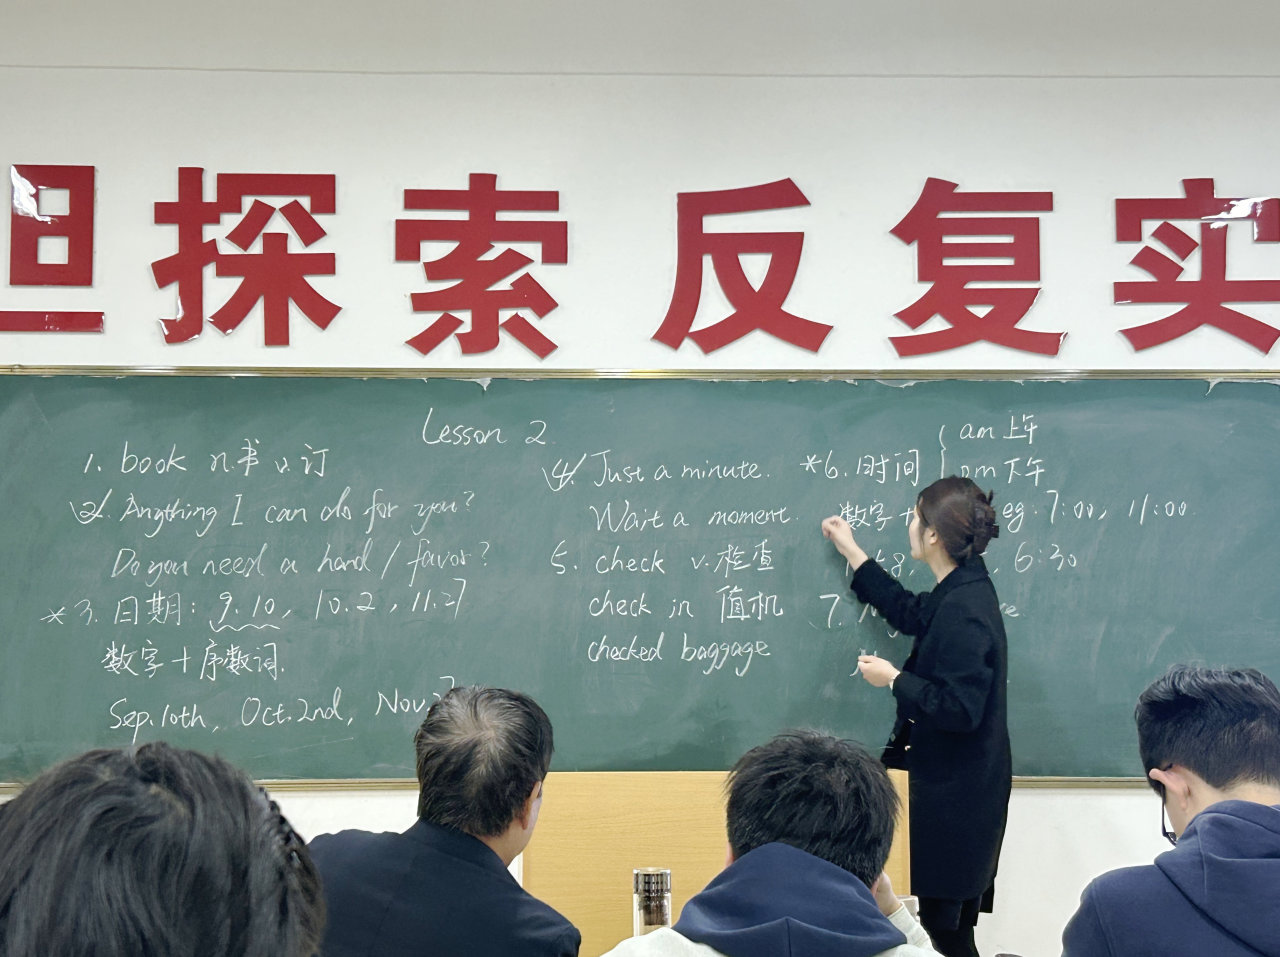 旦探索 反复实
Lesson 2
1. book n.书 v.订
2. Anything I can do for you?
Do you need a hand / favor?
*3. 日期: 9.10, 10.2, 11.27
数字+序数词.
Sep.10th, Oct.2nd, Nov.
4. Just a minute.
Wait a moment.
5. check v.检查
check in 值机
checked baggage
*6. 时间 { am 上午
pm 下午
数字+ eg: 7:00, 11:00
6:30
7.